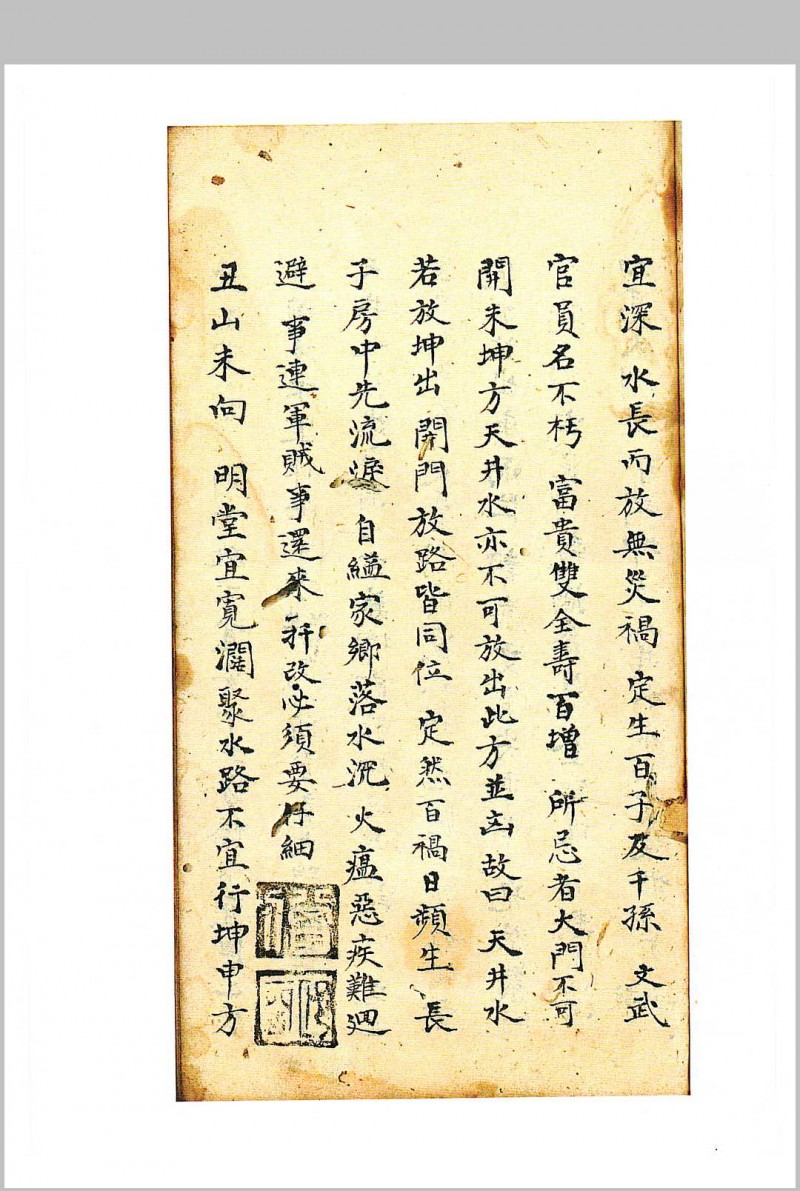 宜深 水長而放無災禍 定生百子及千孫 文武
官員名不朽 富貴雙全壽百增 所忌者大門不可
開未坤方天井水亦不可放出此方並凶故曰 天井水
若放坤出 開門放路皆同位 定然百禍日頻生 長
子房中先流淚 自縊家鄉落水沉 火瘟惡疾難迴
避 事連軍賊事還來 改必須要仔細
丑山未向 明堂宜寬濶聚水路不宜行坤申方